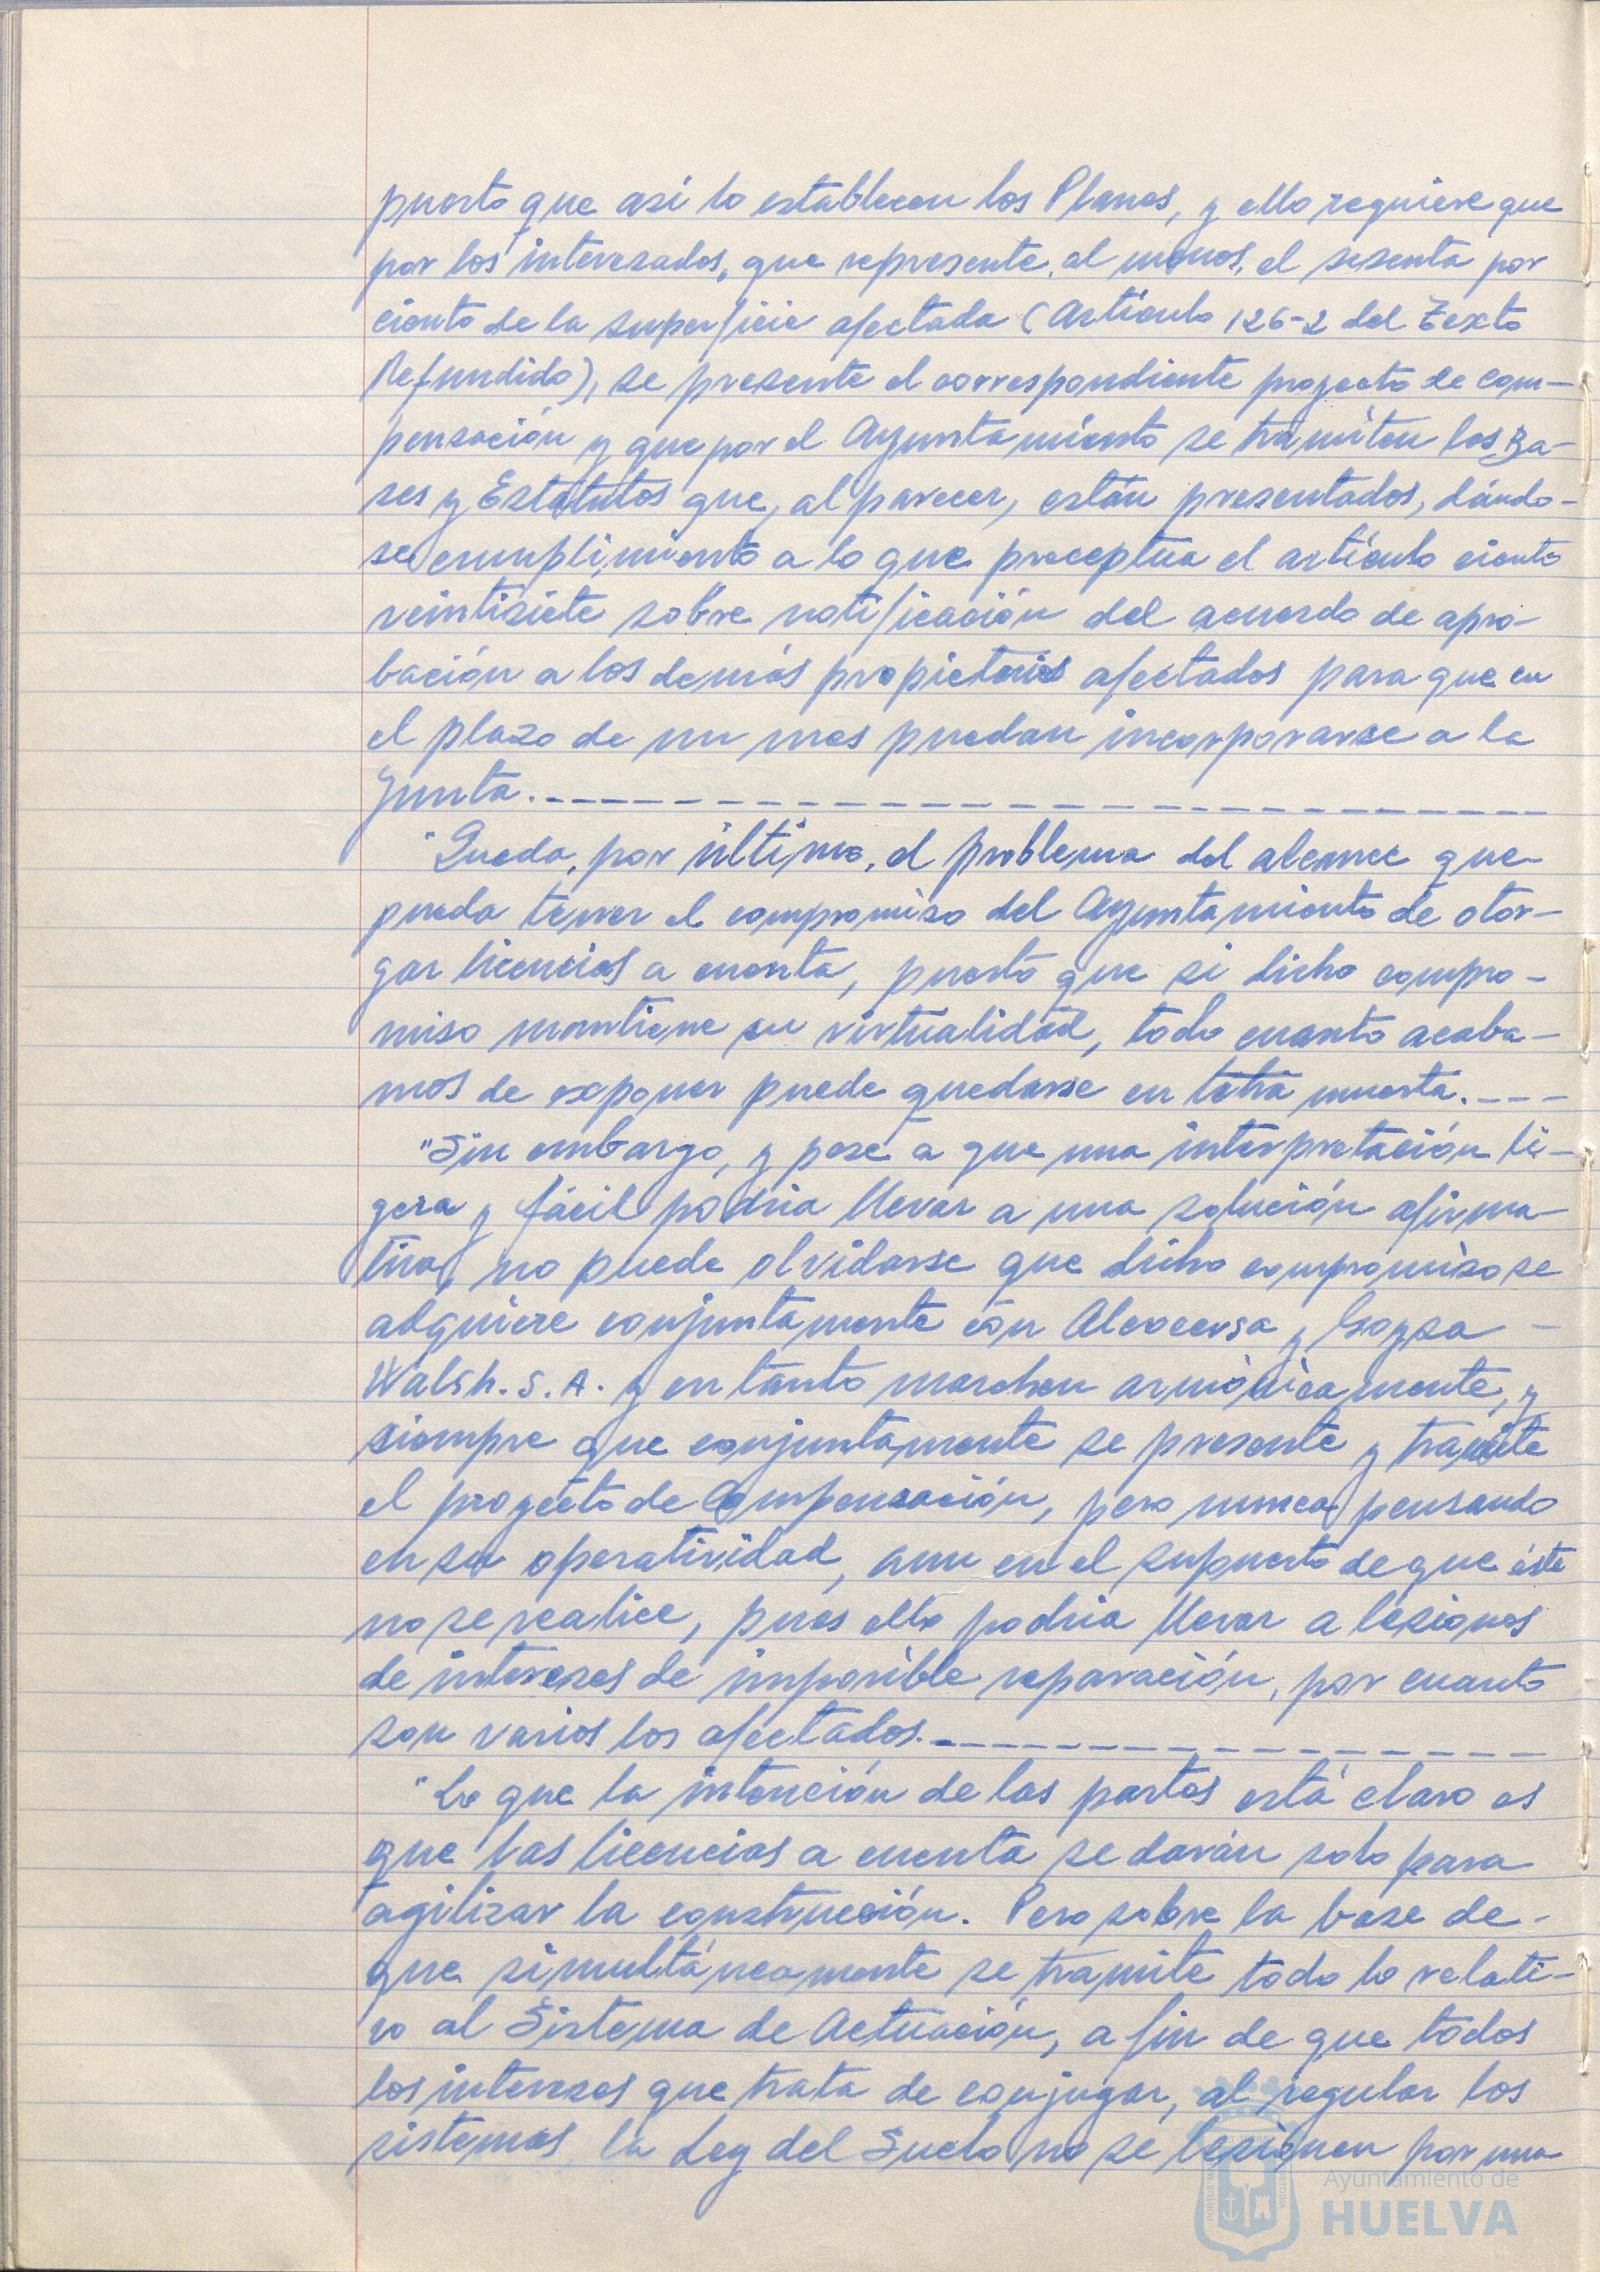 puesto que así lo establecen los Planes, y ello requiere que
por los interesados, que represente, al menos, el sesenta por
ciento de la superficie afectada (Artículo 126-2 del Texto
Refundido), se presente el correspondiente proyecto de com-
pensación y que por el Ayuntamiento se tramiten las Ba-
ses y Estatutos que, al parecer, están presentados, dándo-
se cumplimiento a lo que preceptúa el artículo ciento
veintisiete sobre notificación del acuerdo de apro-
bación a los demás propietarios afectados para que en
el plazo de un mes puedan incorporarse a la
Junta.
"Queda, por último, el problema del alcance que
pueda tener el compromiso del Ayuntamiento de otor-
gar licencias a cuenta, puesto que si dicho compro-
miso mantiene su virtualidad, todo cuanto acaba-
mos de exponer puede quedarse en letra muerta.
"Sin embargo, y pese a que una interpretación li-
gera y fácil podría llevar a una solución afirma-
tiva, no puede olvidarse que dicho compromiso se
adquiere conjuntamente con y
Walsh. S. A. y en tanto marchen armónicamente, y
siempre que conjuntamente se presente y tramite
el proyecto de Compensación, pero nunca pensando
en su operatividad, aun en el supuesto de que éste
no se realice, pues ello podría llevar a lesiones
de intereses de imposible reparación, por cuanto
son varios los afectados.
"Lo que la intención de las partes está claro es
que las licencias a cuenta se darán solo para
agilizar la construcción. Pero sobre la base de-
que simultáneamente se tramite todo lo relati-
vo al Sistema de Actuación, a fin de que todos
los intereses que trata de conjugar, al regular los
sistemas la Ley del Suelo no se lesionen por una
Ayuntamiento de
HUELVA